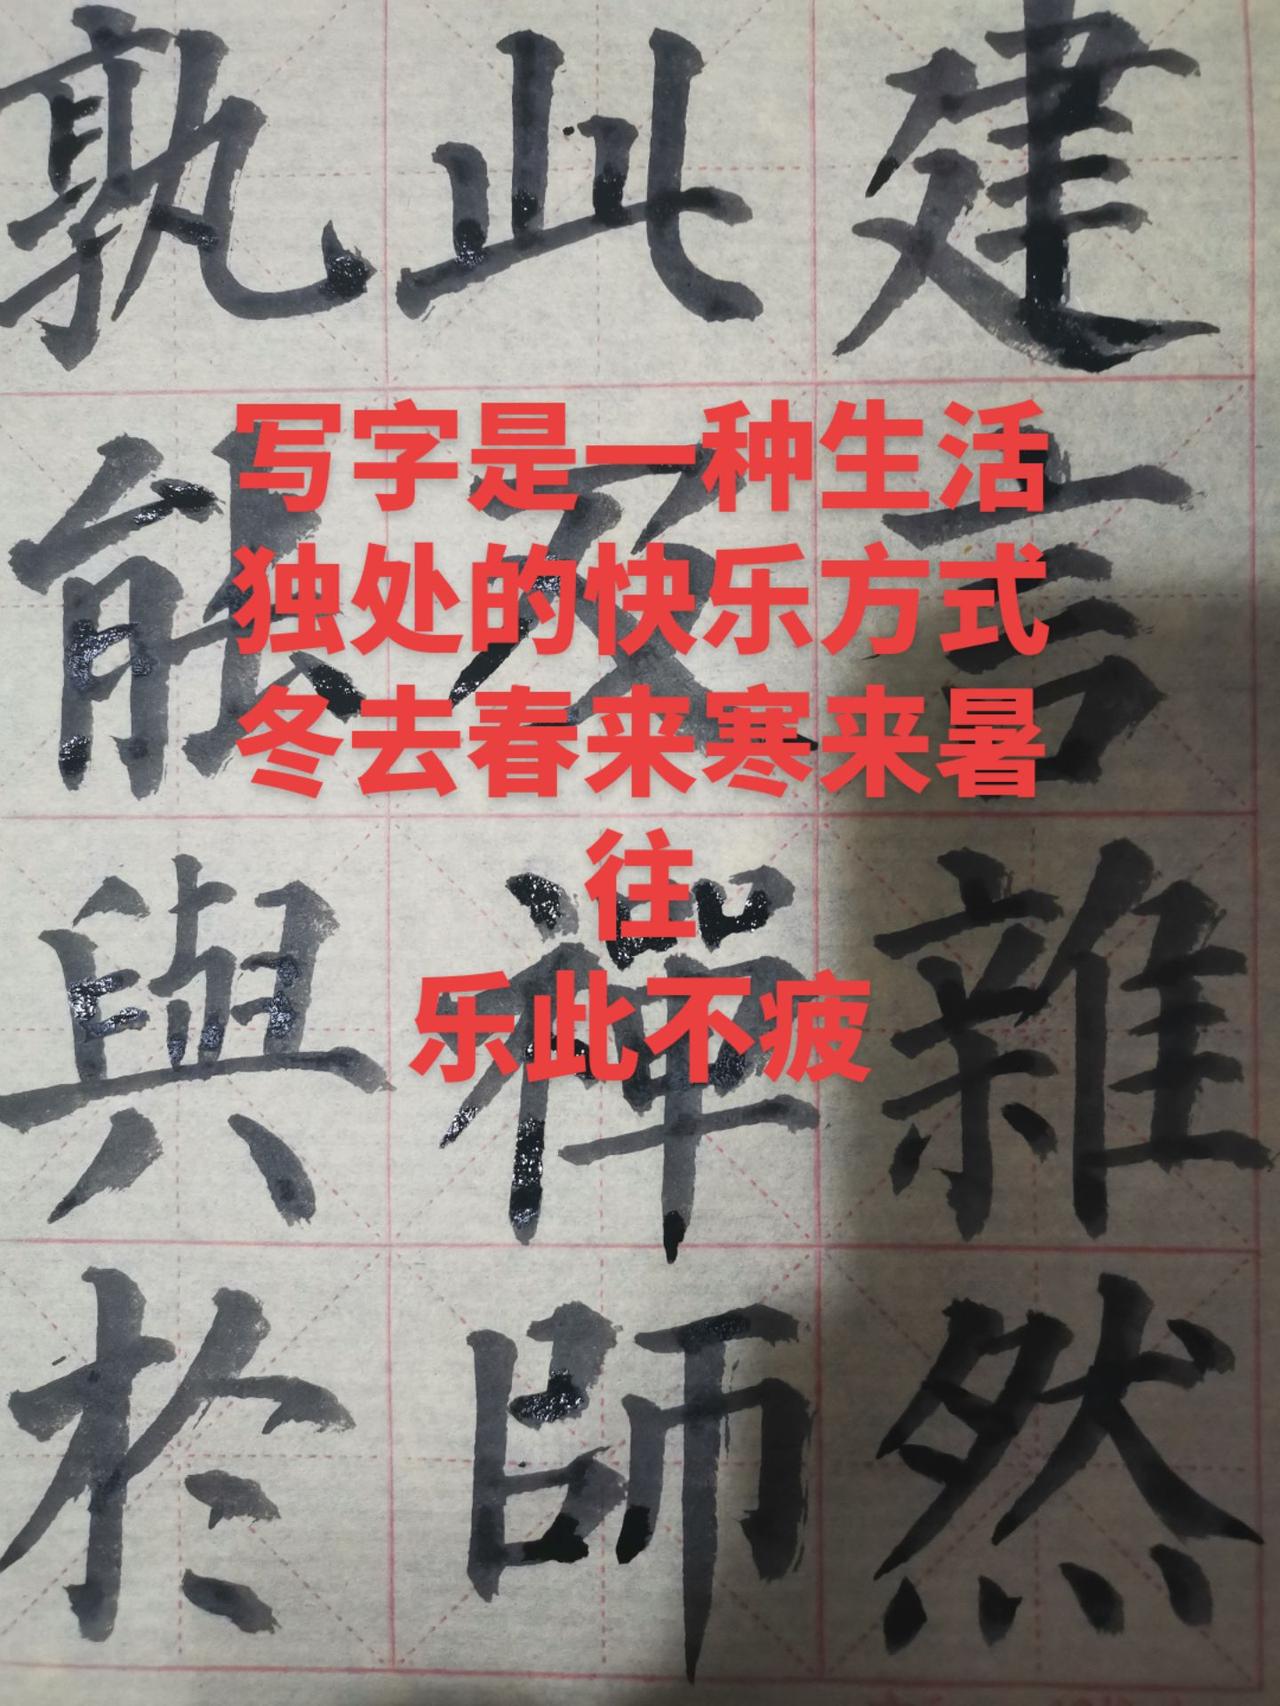 写字是一种生活
独处的快乐方式
冬去春来寒来暑
往
乐此不疲
孰能與於
此及禪師
建言雜然